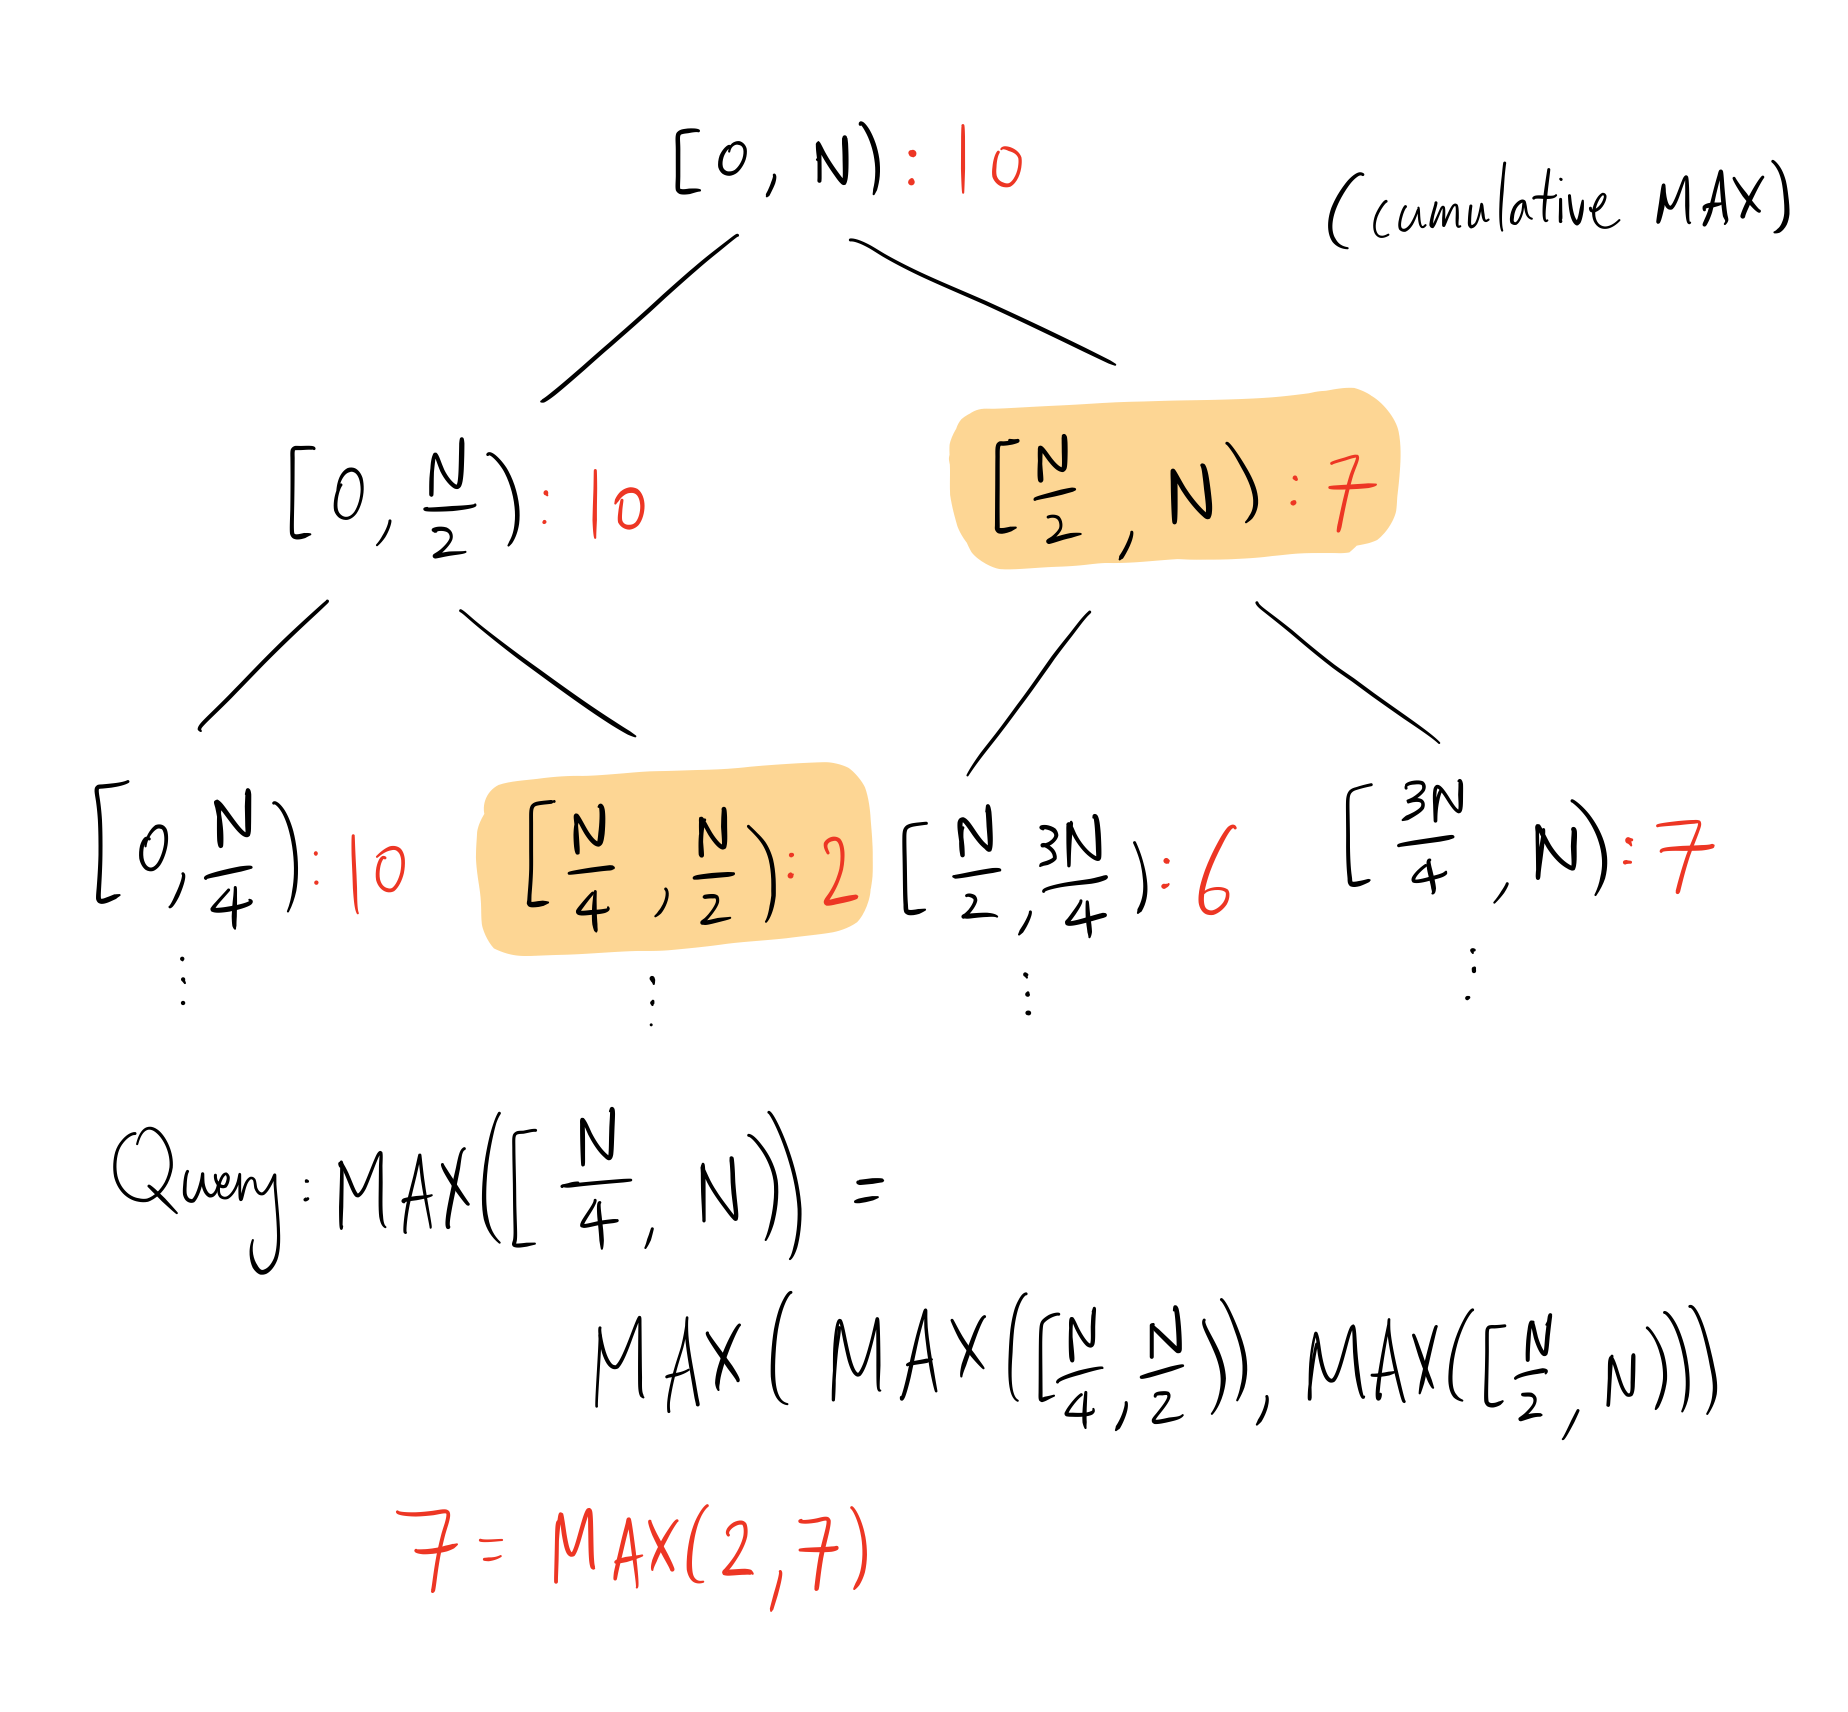 [0, N) : 10
(cumulative MAX)
[0, N/2) : 10
[N/2, N) : 7
[0, N/4) : 10
[N/4, N/2) : 2
[N/2, 3N/4) : 6
[3N/4, N) : 7
Query: MAX([N/4, N)) =
MAX( MAX([N/4, N/2)), MAX([N/2, N)))
7 = MAX(2,7)